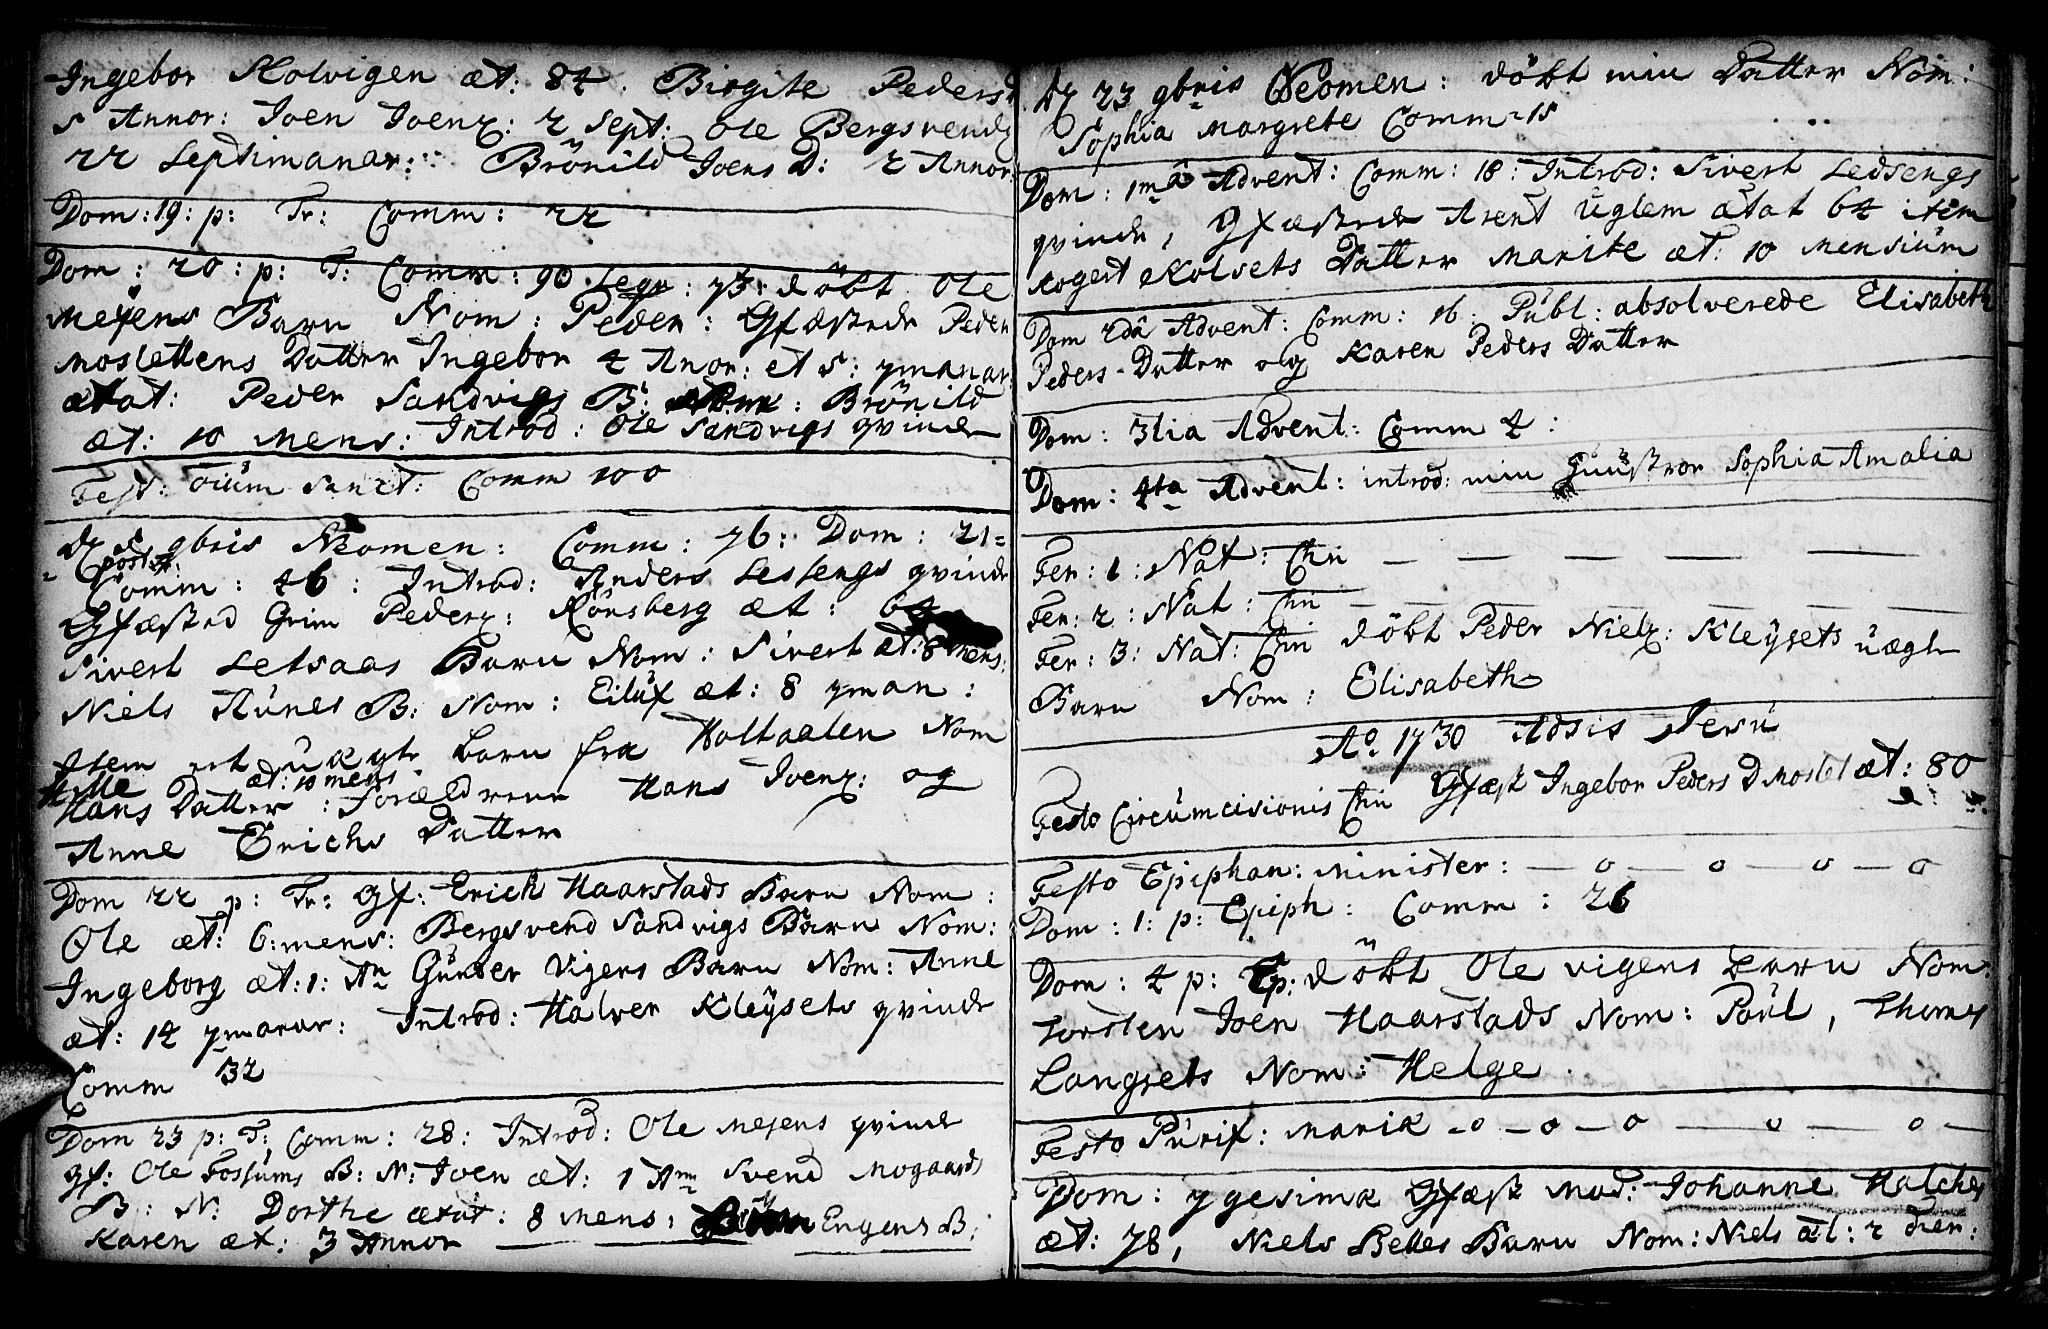 Ingebor Kolvigen æt: 84. Birgite Peders
5 Annor: Joen Joenz: 2 Sept: Ole Bergsvendz
22 Septimanar: Brönild Joens D: 2 Annor:
Dom: 19: p: Tr: Comm: 22
Dom: 20: p: T: Comm: 90 döbt Ole
Meyens Barn Nom: Peder: Gfæstede Peder
Moslettens Datter Ingebor 4 Anor: et 5: 7manar:
ætat: Peder Sandvigs B: Brönild
æt: 10 Mens: Introd: Ole Sandvigs qvinde
Fest: Oium Sanct: Comm 100
D 5 9bris Neomen: Comm: 76: Dom: 21=
post T:
Comm: 46: Introd: Anders Lessengs qvinde
Gfæsted Grim Pederz: Rönsberg æt: 64
Sivert Letsaas Barn Nom: Sivert æt: 8 mens:
Niels Aünes B: Nom: Eilüf æt: 8 7man:
Item ert üægte barn fra Holtaalen Nom
æt: 10 mens
Hans Datter: Forældrene Hans Joenz: og
Anne Erichs Datter
Dom 22 p: Tr: Gf: Erich Haarstads Barn Nom:
Ole æt: 6: mens: Bergsvend Sandvigs Barn Nom:
Ingeborg æt: 1: An Günder Vigens Barn Nom: Anne
æt: 14 7manar: Introd: Halver Kleÿsets qvinde
Comm 32
Dom 23 p: T: Comm: 28: Introd: Ole Meyens qvinde
gf: Ole Fossums B: N: Joen æt: 1 Ann Svend Mogaards
B: N: Dorthe ætat: 8 Mens: Engens B:
Karen æt: 3 Annor
D 23 9bris Neomen: döbt min Datter Nom:
Sophia Margrete Comm 15
Dom: 1ma Advent: Comm: 18: Introd: Sivert Ledsengs
qvinde, Gfæstede Arent Uglem ætat 64 item
Roget Kolsets Datter Marite æt: 10 Mensium
Dom 2da Advent: Comm: 16: Publ: absolverede Elisabeth
Peders-Datter og Karen Peders Datter
Dom: 3tia Advent: Comm 4:
Dom: 4ta Advent: introd: min Huustroe Sophia Amalia
Fer: 1: Nat: Chri — — — — —
Fer: 2: Nat: Chri — — — — —
Fer: 3: Nat: Chri döbt Peder Nielz: Kleÿsets üægte
Barn Nom: Elisabeth
Ao 1730 Adsis Jesu
Festo Circumcisionis Chri Gfæst Ingebor Peders D Moslet æt: 80
Festo Epiphan: Minister: — o — o — o — o
Dom: 1: p: Epiph: Comm: 26
Dom: 4 p: Ep: döbt Ole vigens barn Nom:
Torsten Joen Haarstads Nom: Poül, Thomes
Langsets Nom: Helge.
Festo Purif: Mariæ - o - o - o — o — o —
Dom: 7gesima Gfæst Mad: Johanne Halches
æt: 78, Niels Belles Barn Nom: Niels æt: 2 dier: